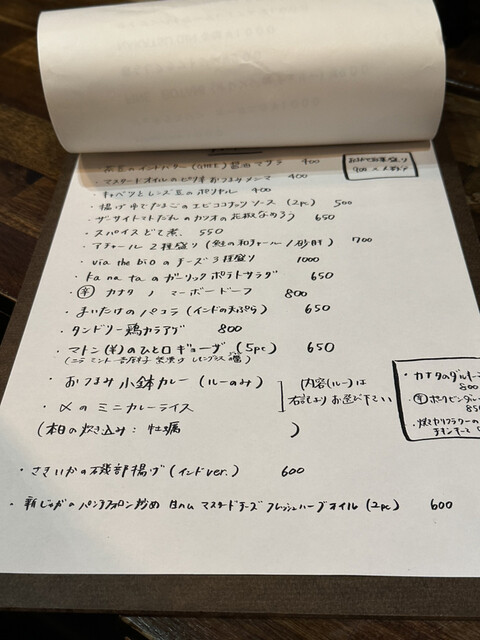 枝豆のインドバター(GHEE)醤油マサラ 400
・マスタードオイルのピリ辛おつまみメンマ 400
・キャベツとレンズ豆のポリヤル 400
・揚げゆでたまごのエビココナッツソース (2pc) 500
・ザーサイトマトだれのカツオの花椒なめろう 650
・スパイスどて煮 550
・アチャール2種盛り (鮭の和チャール/砂肝) 700
・via the bioのチーズ3種盛り 1000
・Kanataのガーリックポテトサラダ 650
・カナタノマーボードーフ 800
・まいたけのパコラ(インドの天ぷら) 650
・タンドリー鶏カラアゲ 800
・マトン(羊)のひと口ギョーザ (5pc) 650
・おつまみ小鉢カレー(ルーのみ)
・〆のミニカレーライス
内容(ルー)は
右記よりお選び下さい
(本日の炊き込み: 牡蠣 )
・カナタのダルカ
800
850
・さきいかの磯部揚げ(インドver.) 600
・新じゃがのパンチフォロン炒め 白ハム マスタードチーズ フレッシュハーブオイル (2pc) 600